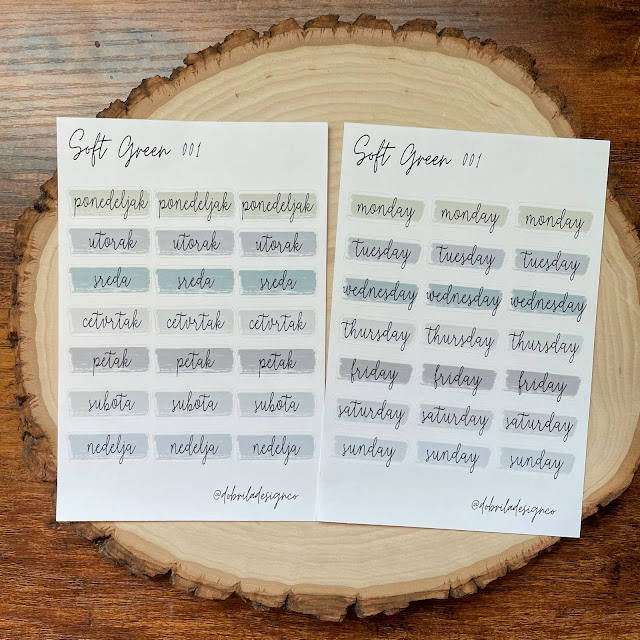 Soft Green 001
ponedeljak ponedeljak ponedeljak
utorak utorak utorak
sreda sreda sreda
cetvrtak cetvrtak cetvrtak
petak petak petak
subota subota subota
nedelja nedelja nedelja
@dobriladesignco
Soft Green 001
monday monday monday
tuesday tuesday tuesday
wednesday wednesday wednesday
thursday thursday thursday
friday friday friday
saturday saturday saturday
sunday sunday sunday
@dobriladesignco